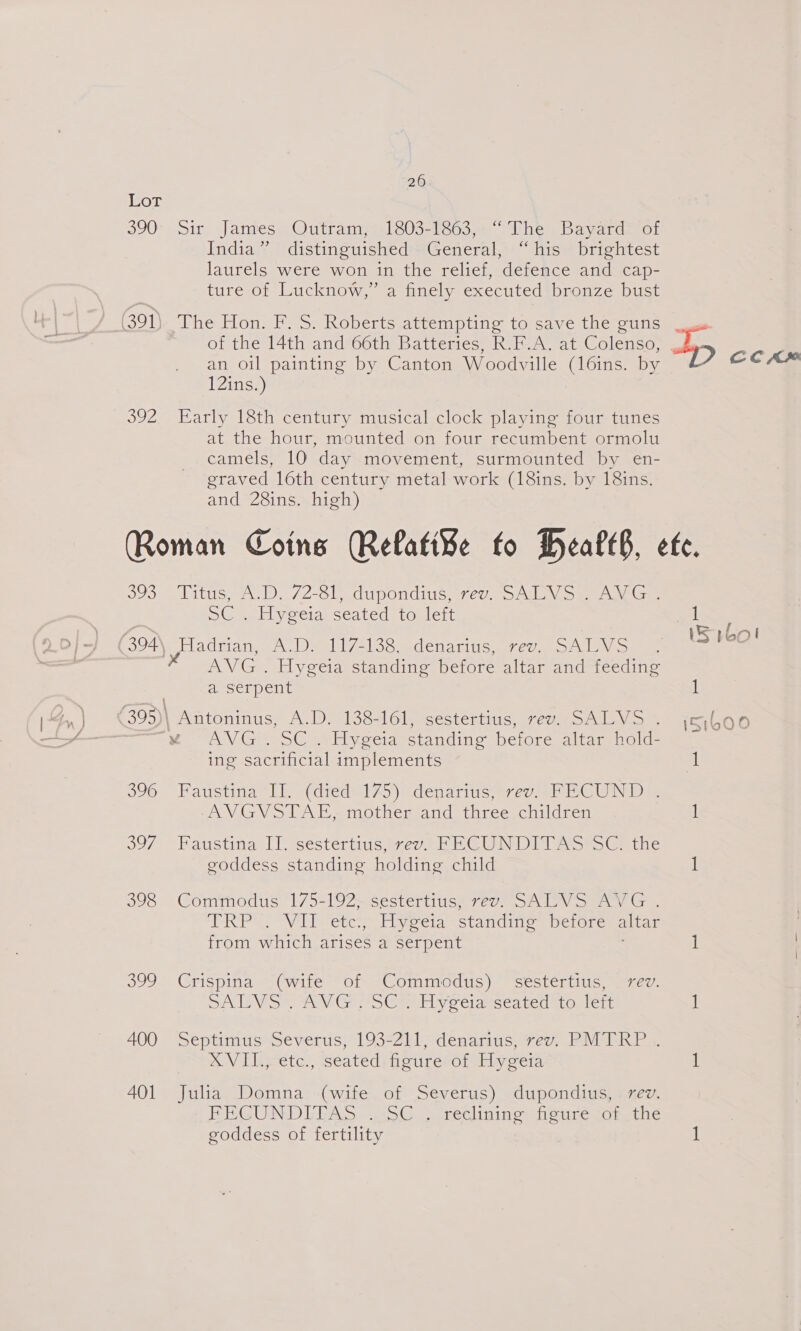 26
LOT
390 Sir James Outram, 1803-1863, “The Bayard of
India” distinguished General, “his brightest
laurels were won in the relief, defence and cap-
ture of Lucknow,” a finely executed bronze bust
(391) The Hon. F. S. Roberts attempting to save the guns
of the 14th and 66th Batteries, R.F.A. at Colenso,
an oil painting by Canton Woodville (16ins. by
12ins.)
392 Early 18th century musical clock playing four tunes
at the hour, mounted on four recumbent ormolu
camels, 10 day movement, surmounted by en-
graved 16th century metal work (18ins. by 18ins.
and 28ins. high)
Roman Coins Relative to Health, etc.
393 Titus, A.D. 72-81, dupondius, rev. SALVS . AVG .
SC . Hygeia seated to left 1
(394) Hadrian, A.D. 117-138, denarius, rev. SALVS .
AVG . Hygeia standing before altar and feeding
a serpent 1
(395) Antoninus, A.D. 138-161, sestertius, rev. SALVS .
AVG . SC . Hygeia standing before altar hold-
ing sacrificial implements 1
396 Faustina II. (died 175) denarius, rev. FECUND .
AVGVSTAE, mother and three children 1
397 Faustina II. sestertius, rev. FECUNDITAS SC. the
goddess standing holding child 1
398 Commodus 175-192, sestertius, rev. SALVS AVG .
TRP . VII etc., Hygeia standing before altar
from which arises a serpent 1
399 Crispina (wife of Commodus) sestertius, rev.
SALVS . AVG . SC . Hygeia seated to left 1
400 Septimus Severus, 193-211, denarius, rev. PMTRP .
XVII., etc., seated figure of Hygeia 1
401 Julia Domna (wife of Severus) dupondius, rev.
FECUNDITAS . SC . reclining figure of the
goddess of fertility 1